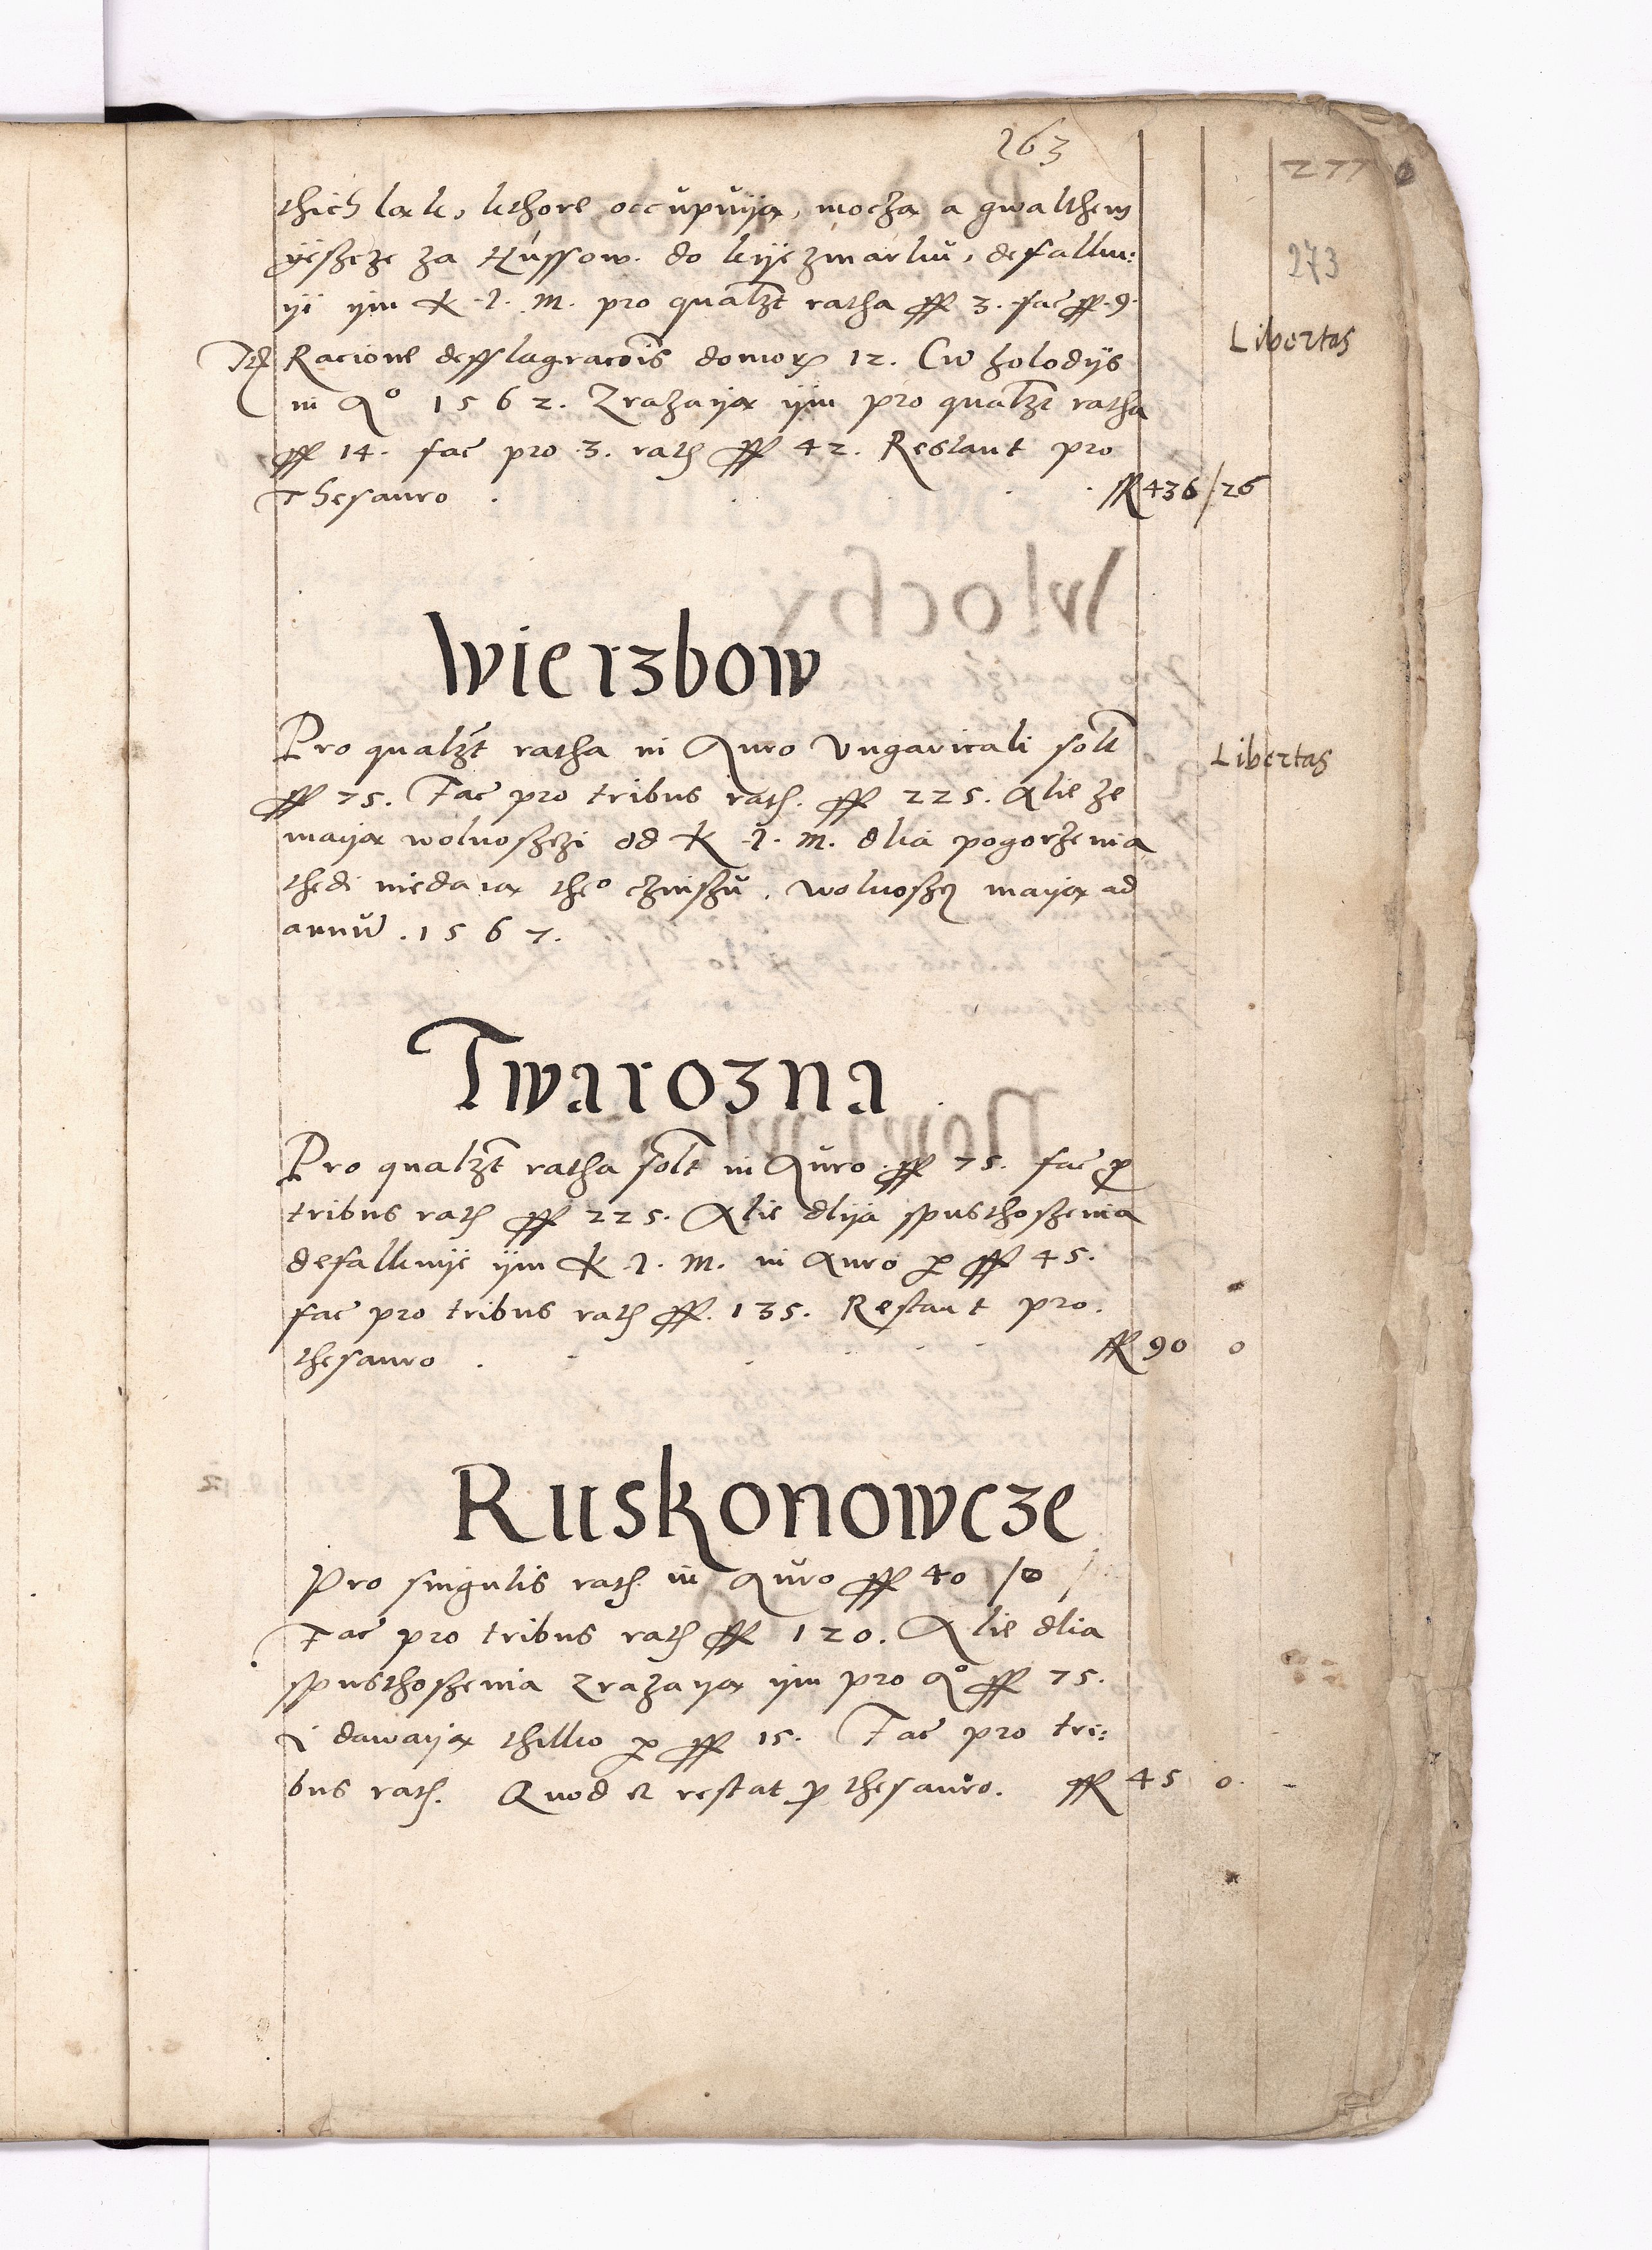 263
277
273
thich lak, kthore occupuiją, moczą a gwalthem
yeszcze za Hussow. do kyezmarku, defallku:
yi ym K. J. M. pro qualzt ratha ff 3. fac ff 9.
Libertas
Itẽ Racione defflagracõis domorũ 12. Cw holodys
in Aº 1562. Zrazayą ym pro qualzt ratha
ff 14. fac pro 3. rath ff 42. Restant pro
Thesauro . . . . fR 436/26
Wierzbow
Pro qualzt ratha in Auro Vngaricali solt
Libertas
ff 75. Fac pro tribus rath. ff 225. Alie ze
mayą wolnosczi od K. J. M. dlia pogorzenia
thedi niedaią theº czinszu. wolnoscz mayą ad
annũ. 1567.
Twarozna
Pro qualzt ratha solt in Auro ff 75. fac p
tribus rath ff 225. Alie dlya spusthoszenia
defallkuye ym K. J. M. in Auro p ff 45.
fac pro tribus rath ff. 135. Restant pro.
thesauro . . . . . fR 90 0
Ruskonowcze
Pro singulis rath. in Auro ff 40 /0/
Fac pro tribus rath ff 120. Alie dlia
spusthoszenia Zrazayą ym pro Aº ff 75.
i dawayą thilko p ff 15. Fac pro tri:
bus rath. Quod et restat p thesauro. fR 45 0.